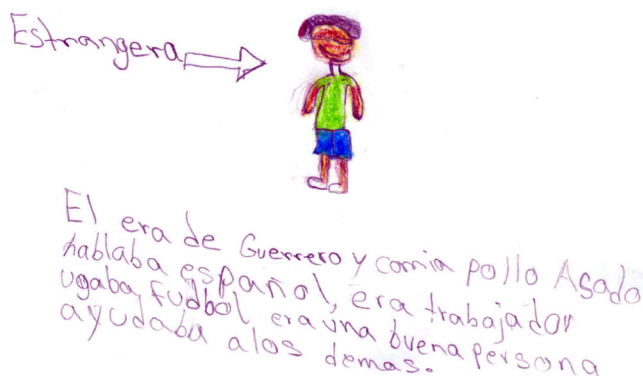 Estrangera
El era de Guerrero y comia pollo Asado
hablaba español, era trabajador
ugaba fudbol era una buena persona
ayudaba alos demas.